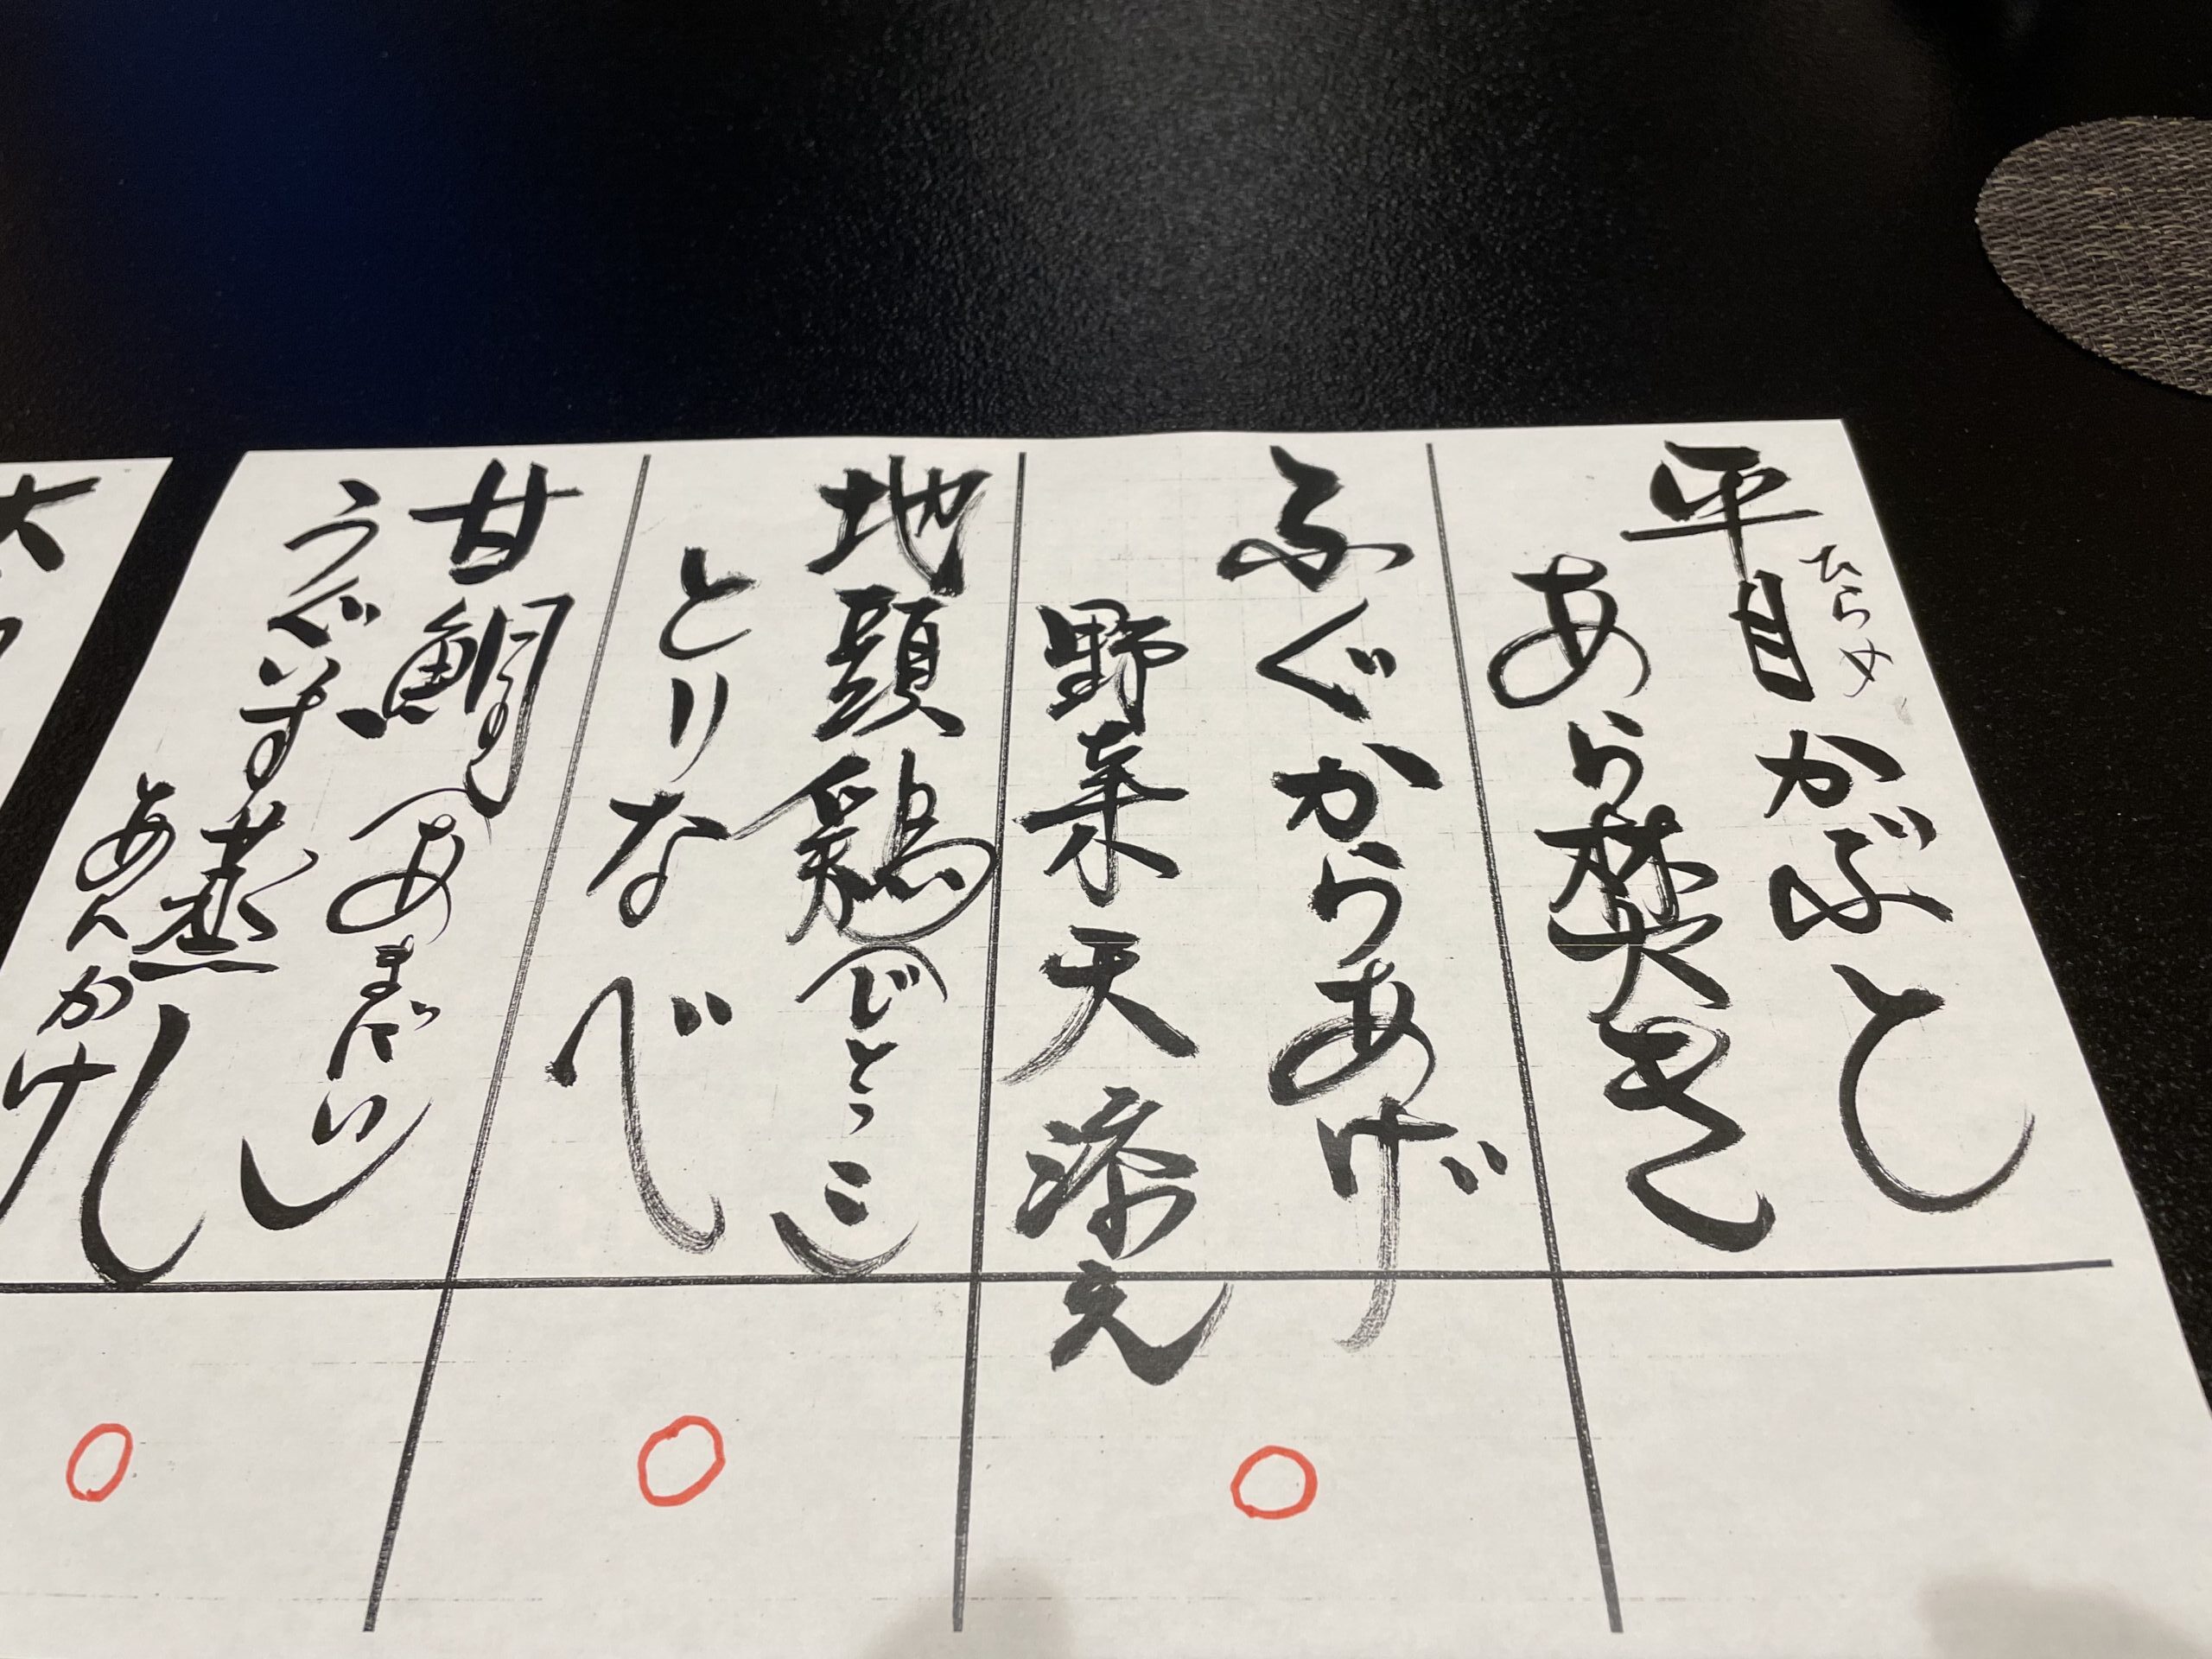 平目かぶと
ひらめ
あら焚き
ふぐからあげ
野菜天添え
地頭鶏（じとっこ）
とりなべ
甘鯛（あまだい）
うぐいす蒸し
あんかけ